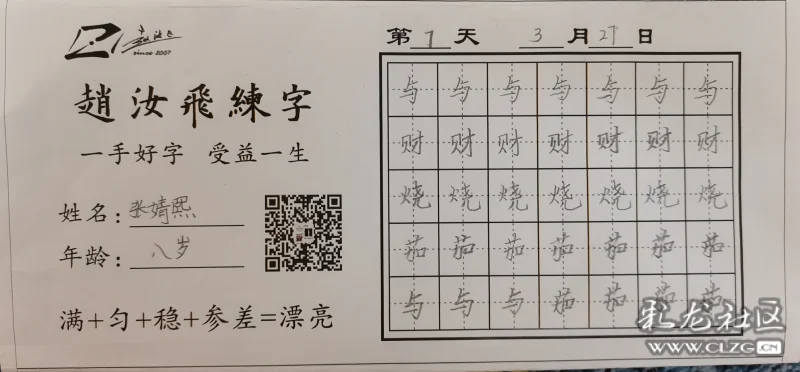 since 2007
趙汝飛練字
一手好字 受益一生
姓名:张婧熙
年龄:八岁
满+匀+稳+参差=漂亮
第 1 天 3 月 27 日
与 与 与 与 与 与 与
财 财 财 财 财 财 财
烧 烧 烧 烧 烧 烧 烧
茄 茄 茄 茄 茄 茄 茄
与 与 与 茄 茄 茄 茄
社区
WWW.CLZG.CN